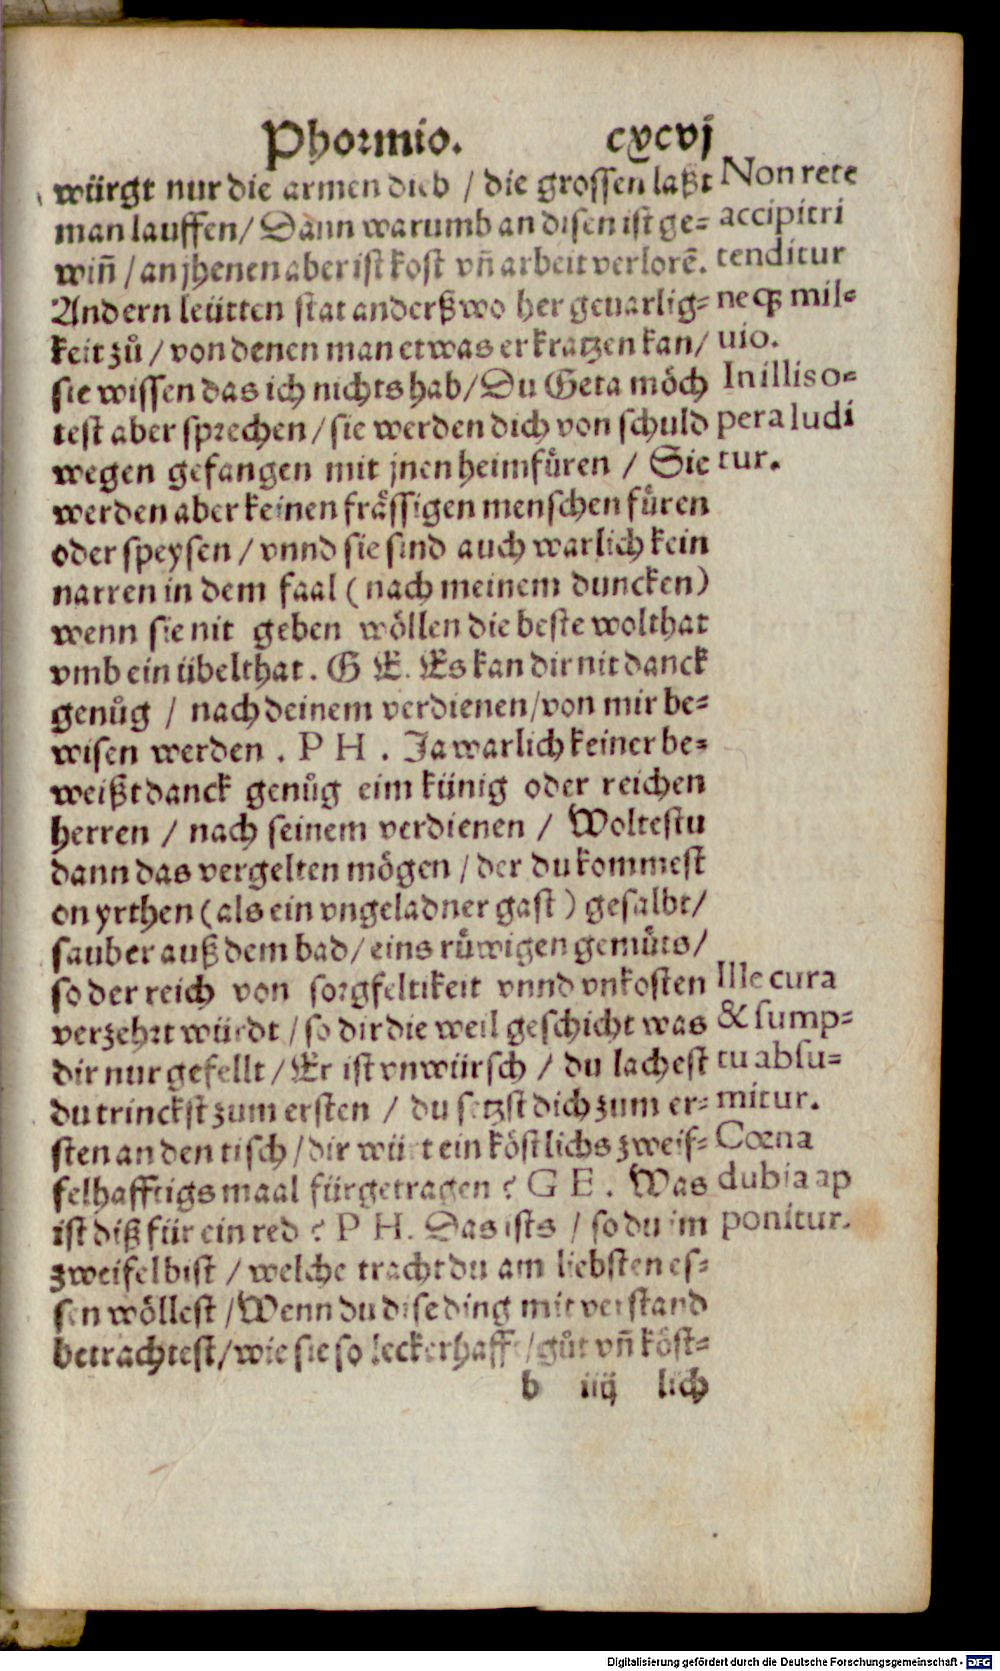 Phormio. cxcvj
würgt nur die armen dieb / die grossen laßt
man lauffen / Dann warumb an disen ist ge=
wiñ / an jhenen aber ist kost vñ arbeit verlorẽ.
Andern leütten stat anderßwo her geuarlig=
keit zů / von denen man etwas erkratzen kan /
sie wissen das ich nichts hab / Du Geta möch
test aber sprechen / sie werden dich von schuld
wegen gefangen mit jnen heimfüren / Sie
werden aber keinen frässigen menschen füren
oder speysen / vnnd sie sind auch warlich kein
narren in dem faal ( nach meinem duncken )
wenn sie nit geben wöllen die beste wolthat
vmb ein übelthat . G E. Es kan dir nit danck
genůg / nach deinem verdienen / von mir be=
wisen werden . P H . Ja warlich keiner be=
weißt danck genůg eim künig oder reichen
herren / nach seinem verdienen / Woltestu
dann das vergelten mögen / der du kommest
on yrthen ( als ein vngeladner gast ) gesalbt /
sauber auß dem bad / eins rüwigen gemüts /
so der reich von sorgfeltikeit vnnd vnkosten
verzehrt würdt / so dir die weil geschicht was
dir nur gefellt / Er ist vnwürsch / du lachest
du trinckst zum ersten / du setzst dich zum er=
sten an den tisch / dir würt ein köstlichs zweif=
felhafftigs maal fürgetragen ? G E . Was
ist diß für ein red ? P H. Das ists / so du im
zweifel bist / welche tracht du am liebsten es=
sen wöllest / Wenn du dise ding mit verstand
betrachtest / wie sie so leckerhafft / gůt vñ köst=
b iiij lich
Non rete
accipitri
tenditur
neqꝫ mil=
uio.
In illis o=
pera ludi
tur.
Ille cura
& sump=
tu absu=
mitur.
Cœna
dubia ap
ponitur.
Digitalisierung gefördert durch die Deutsche Forschungsgemeinschaft - DFG